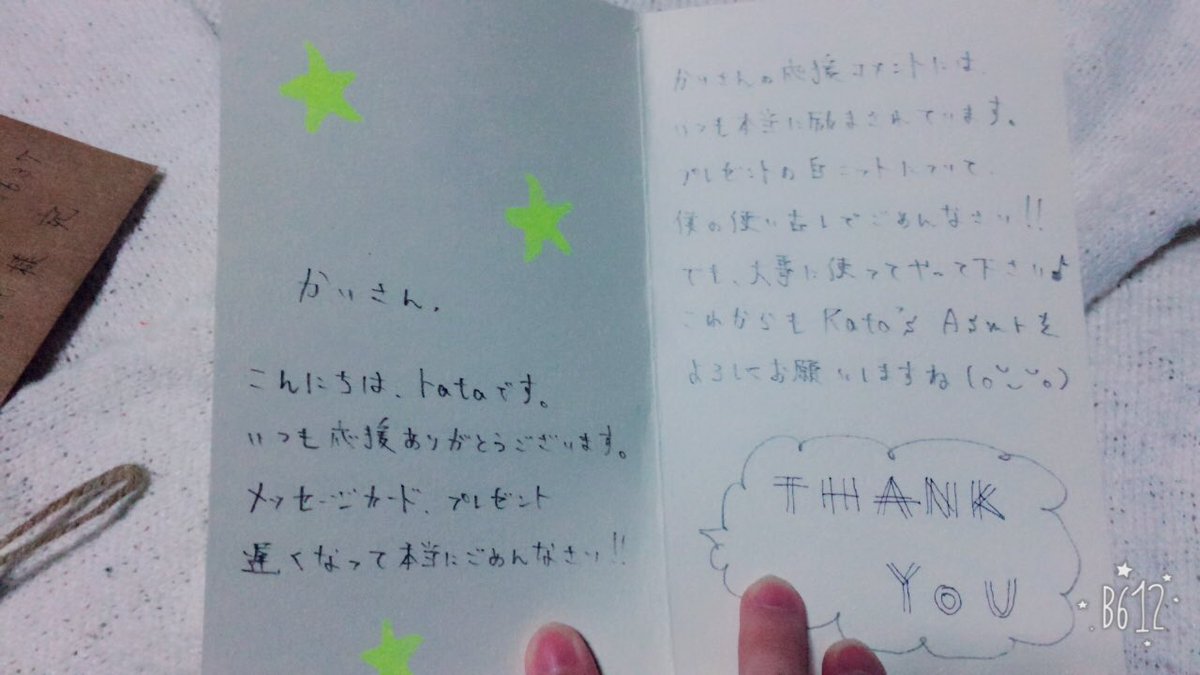 かいさん,
こんにちは、kataです。
いつも応援ありがとうございます。
メッセージカード、プレゼント
遅くなって本当にごめんなさい!!
かいさんの応援コメントには、
いつも本当に励まされています。
プレゼントの白ニットについて、
僕の使い古しでごめんなさい!!
でも、大事に使ってやって下さい♪
これからも Kata's を
よろしくお願いしますね(o˘◡˘o)
THANK
YOU
様
B612